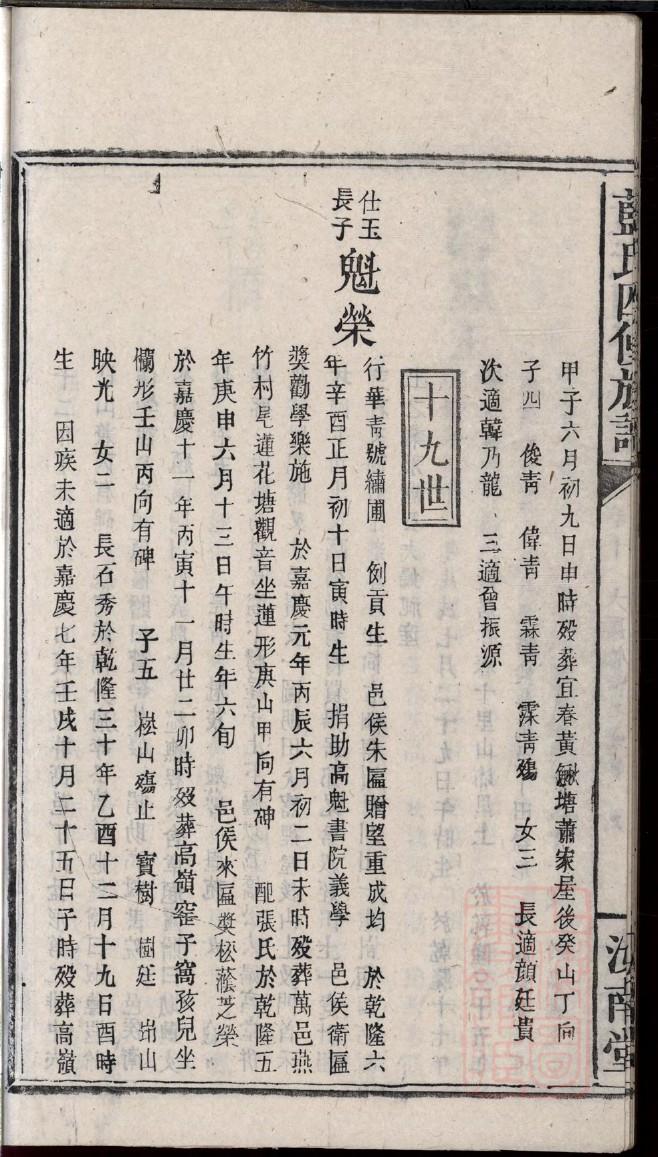 藍氏四修族譜
汝南堂
甲子六月初九日申時歿葬宜春黃鰍塘蕭家屋後癸山丁向
子四　俊青　偉青　霖青　霂青殤　女三　長適顔廷貴
次適韓乃龍　三適曾振源
十九世
仕玉長子魁榮
行華青號繡圃　例貢生　邑侯朱匾贈望重成均　於乾隆六
年辛酉正月初十日寅時生　捐助高魁書院義學　邑侯衛匾
獎勸學樂施　於嘉慶元年丙辰六月初二日未時歿葬萬邑燕
竹村尾蓮花塘觀音坐蓮形庚山甲向有碑　配張氏於乾隆五
年庚申六月十三日午時生年六旬　邑侯來匾獎松蔭芝榮
於嘉慶十一年丙寅十一月廿二卯時歿葬高嶺窰子窩孩兒坐
欄形壬山丙向有碑　子五　崧山殤止　寶樹　樹廷　岀山
映光　女二　長石秀於乾隆三十年乙酉十二月十九日酉時
生　因疾未適於嘉慶七年壬戌十月二十五日子時歿葬高嶺